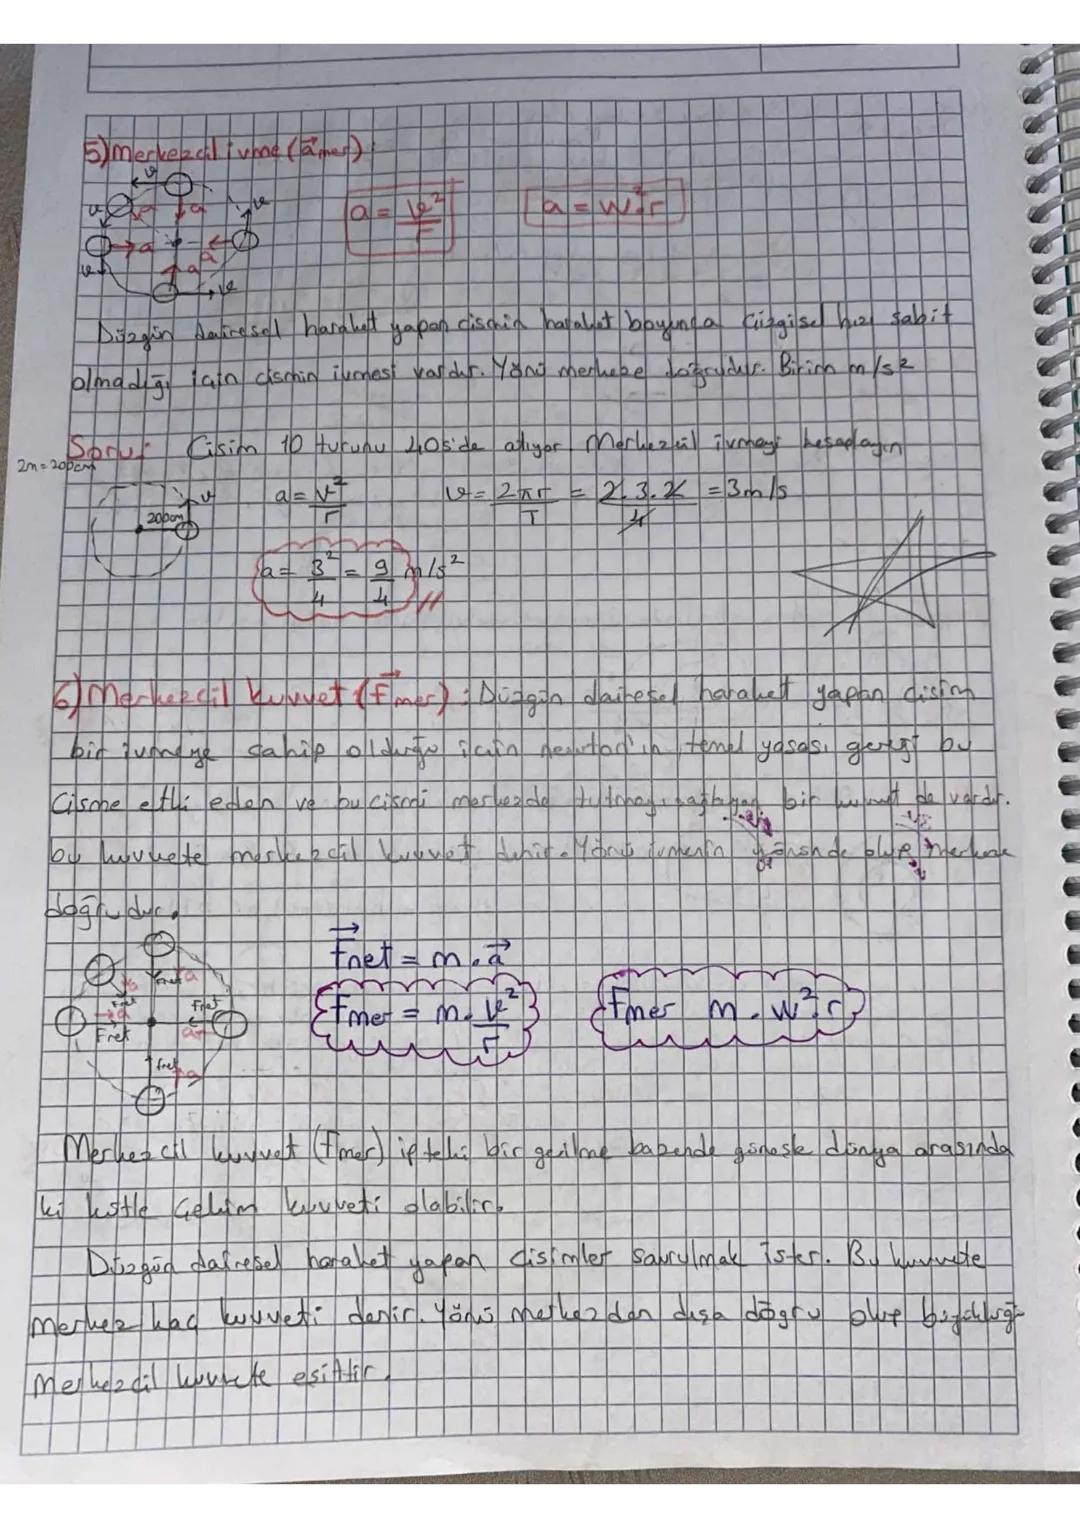 5) Merkezcil ivme (a⃗mer):
a = v²/r   a = w².r
Düzgün dairesel haraket yapan cismin haraket boyunca Çizgisel hızı sabit
olmadığı için cismin ivmesi vardır. Yönü merkeze doğrudur. Birim m/s²
Soru: Cisim 10 turunu 40s'de atıyor. Merkezcil ivmeyi hesaplayın
2m = 200cm
200cm
v
a = v²/r   v = 2πr/T = 2.3.2/4 = 3m/s
a = 3²/4 = 9/4 m/s²
6) Merkezcil kuvvet (F⃗mer): Düzgün dairesel haraket yapan cisim
bir ivmeye sahip olduğu için newton'ın temel yasası gereği bu
Cisme etki eden ve bu cismi merkezde tutmayı sağlayan bir kuvvet de vardır.
bu kuvvete merkezcil kuvvet denir. Yönü ivmenin yönünde olup merkeze
doğrudur.
F⃗net = m.a⃗
Fmer = m.v²/r   Fmer m.w².r
Fnet a
Merkezcil kuvvet (Fmer) ipteki bir gerilme bazende güneşle dünya arasında
ki kütle Çekim kuvveti olabilir.
Düzgün dairesel haraket yapan cisimler savrulmak ister. Bu kuvvete
merkez kaç kuvveti denir. Yönü merkezden dışa doğru olup büyüklüğü
Merkezcil kuvvete eşittir.